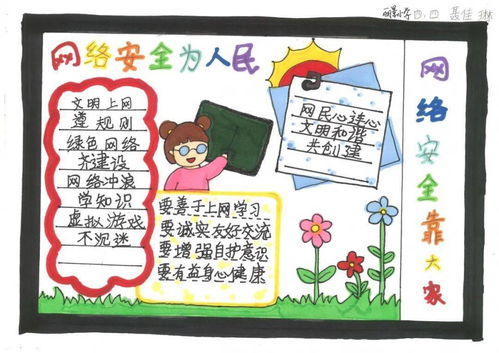 丽景小学四.四 聂佳琳
网络安全为人民
文明上网
遵规则
绿色网络
齐建设
网络冲浪
学知识
虚拟游戏
不沉迷
网民心连心
文明和谐
共创建
要善于上网学习
要诚实友好交流
要增强自护意识
要有益身心健康
网络安全靠大家